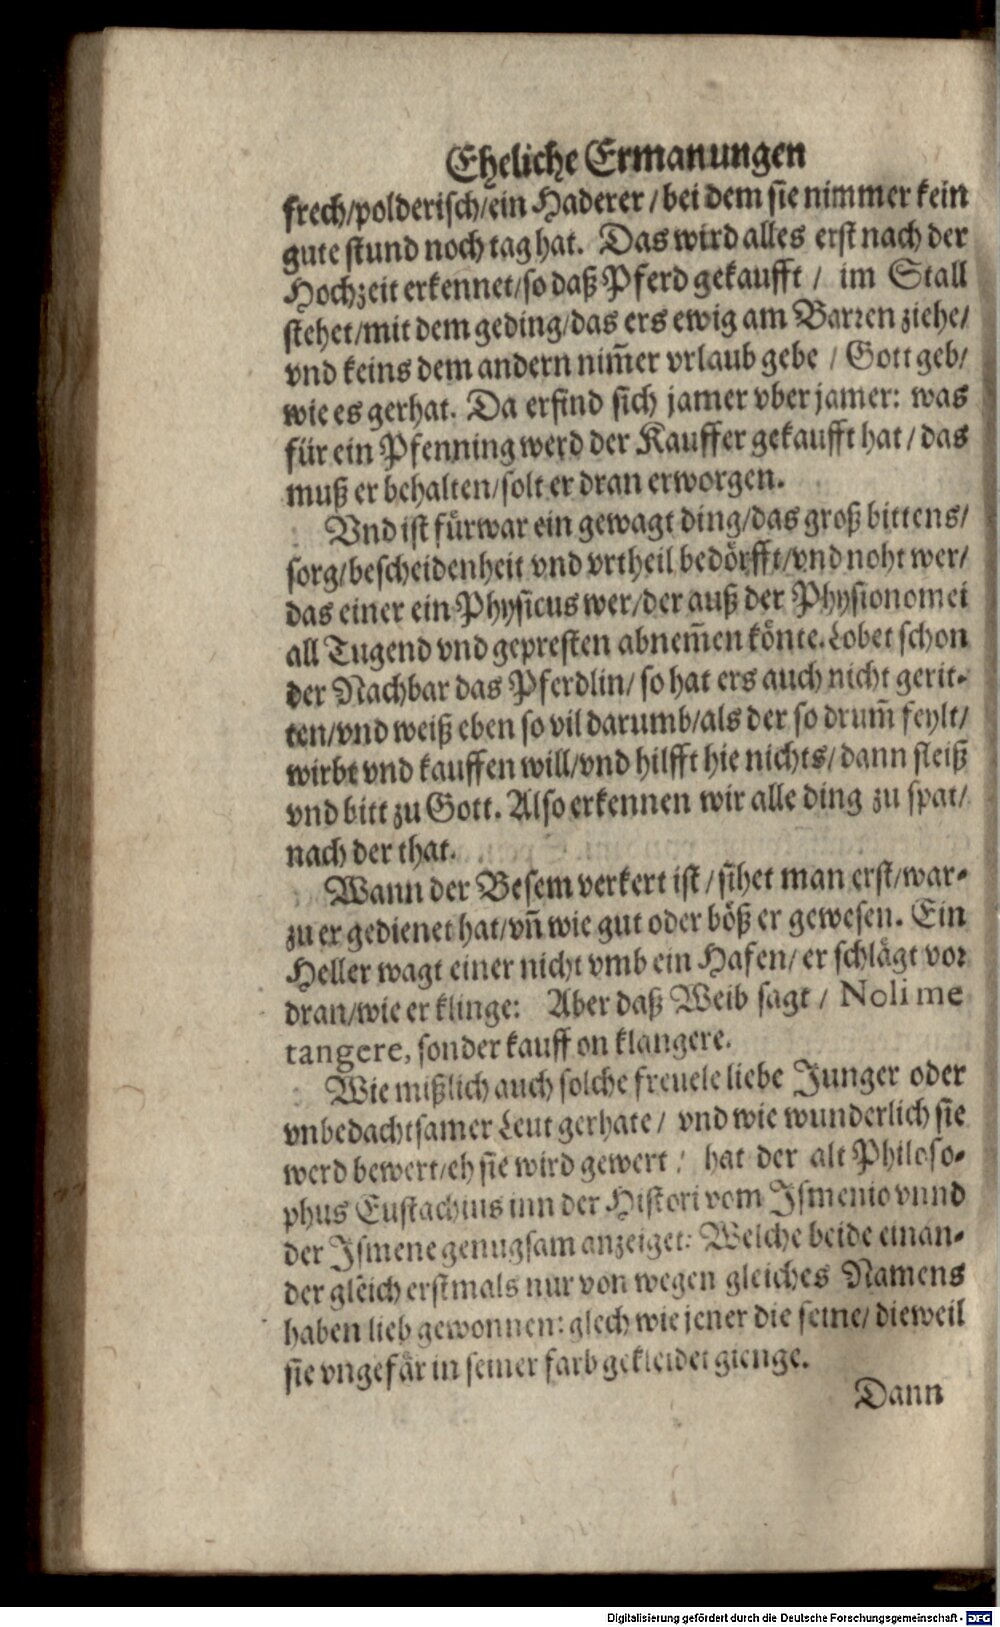 Eheliche Ermanungen
frech/polderisch/ein Haderer/bei dem sie nimmer kein
gute stund noch tag hat. Das wird alles erst nach der
Hochzeit erkennet/so daß Pferd gekaufft/ im Stall
stehet/mit dem geding/das ers ewig am Barren ziehe/
vnd keins dem andern nim̃er vrlaub gebe/Gott geb/
wie es gerhat. Da erfind sich jamer vber jamer: was
für ein Pfenningwerd der Kauffer gekaufft hat/das
muß er behalten/solt er dran erworgen.
Vnd ist fürwar ein gewagt ding/das groß bittens/
sorg/bescheidenheit vnd vrtheil bedörfft/vnd noht wer/
das einer ein Physicus wer/der auß der Physionomei
all Tugend vnd gepresten abnem̃en könte. Lobet schon
der Nachbar das Pferdlin/so hat ers auch nicht gerit-
ten/vnd weiß eben so vil darumb/als der so drum̃ feylt/
wirbt vnd kauffen will/vnd hilfft hie nichts/dann fleiß
vnd bitt zu Gott. Also erkennen wir alle ding zu spat/
nach der that.
Wann der Besem verkert ist/sihet man erst/war-
zu er gedienet hat/vñ wie gut oder böß er gewesen. Ein
Heller wagt einer nicht vmb ein Hafen/er schlägt vor
dran/wie er klinge: Aber daß Weib sagt/ Noli me
tangere, sonder kauff on klangere.
Wie mißlich auch solche freuele liebe Junger oder
vnbedachtsamer Leut gerhate/ vnd wie wunderlich sie
werd bewert/eh sie wird gewert: hat der alt Philoso-
phus Eustachius inn der Histori vom Ismenio vnnd
der Ismene genugsam anzeiget: Welche beide einan-
der gleich erstmals nur von wegen gleiches Namens
haben lieb gewonnen: glech wie jener die seine/dieweil
sie vngefär in seiner farb gekleidet gienge.
Dann
Digitalisierung gefördert durch die Deutsche Forschungsgemeinschaft - DFG